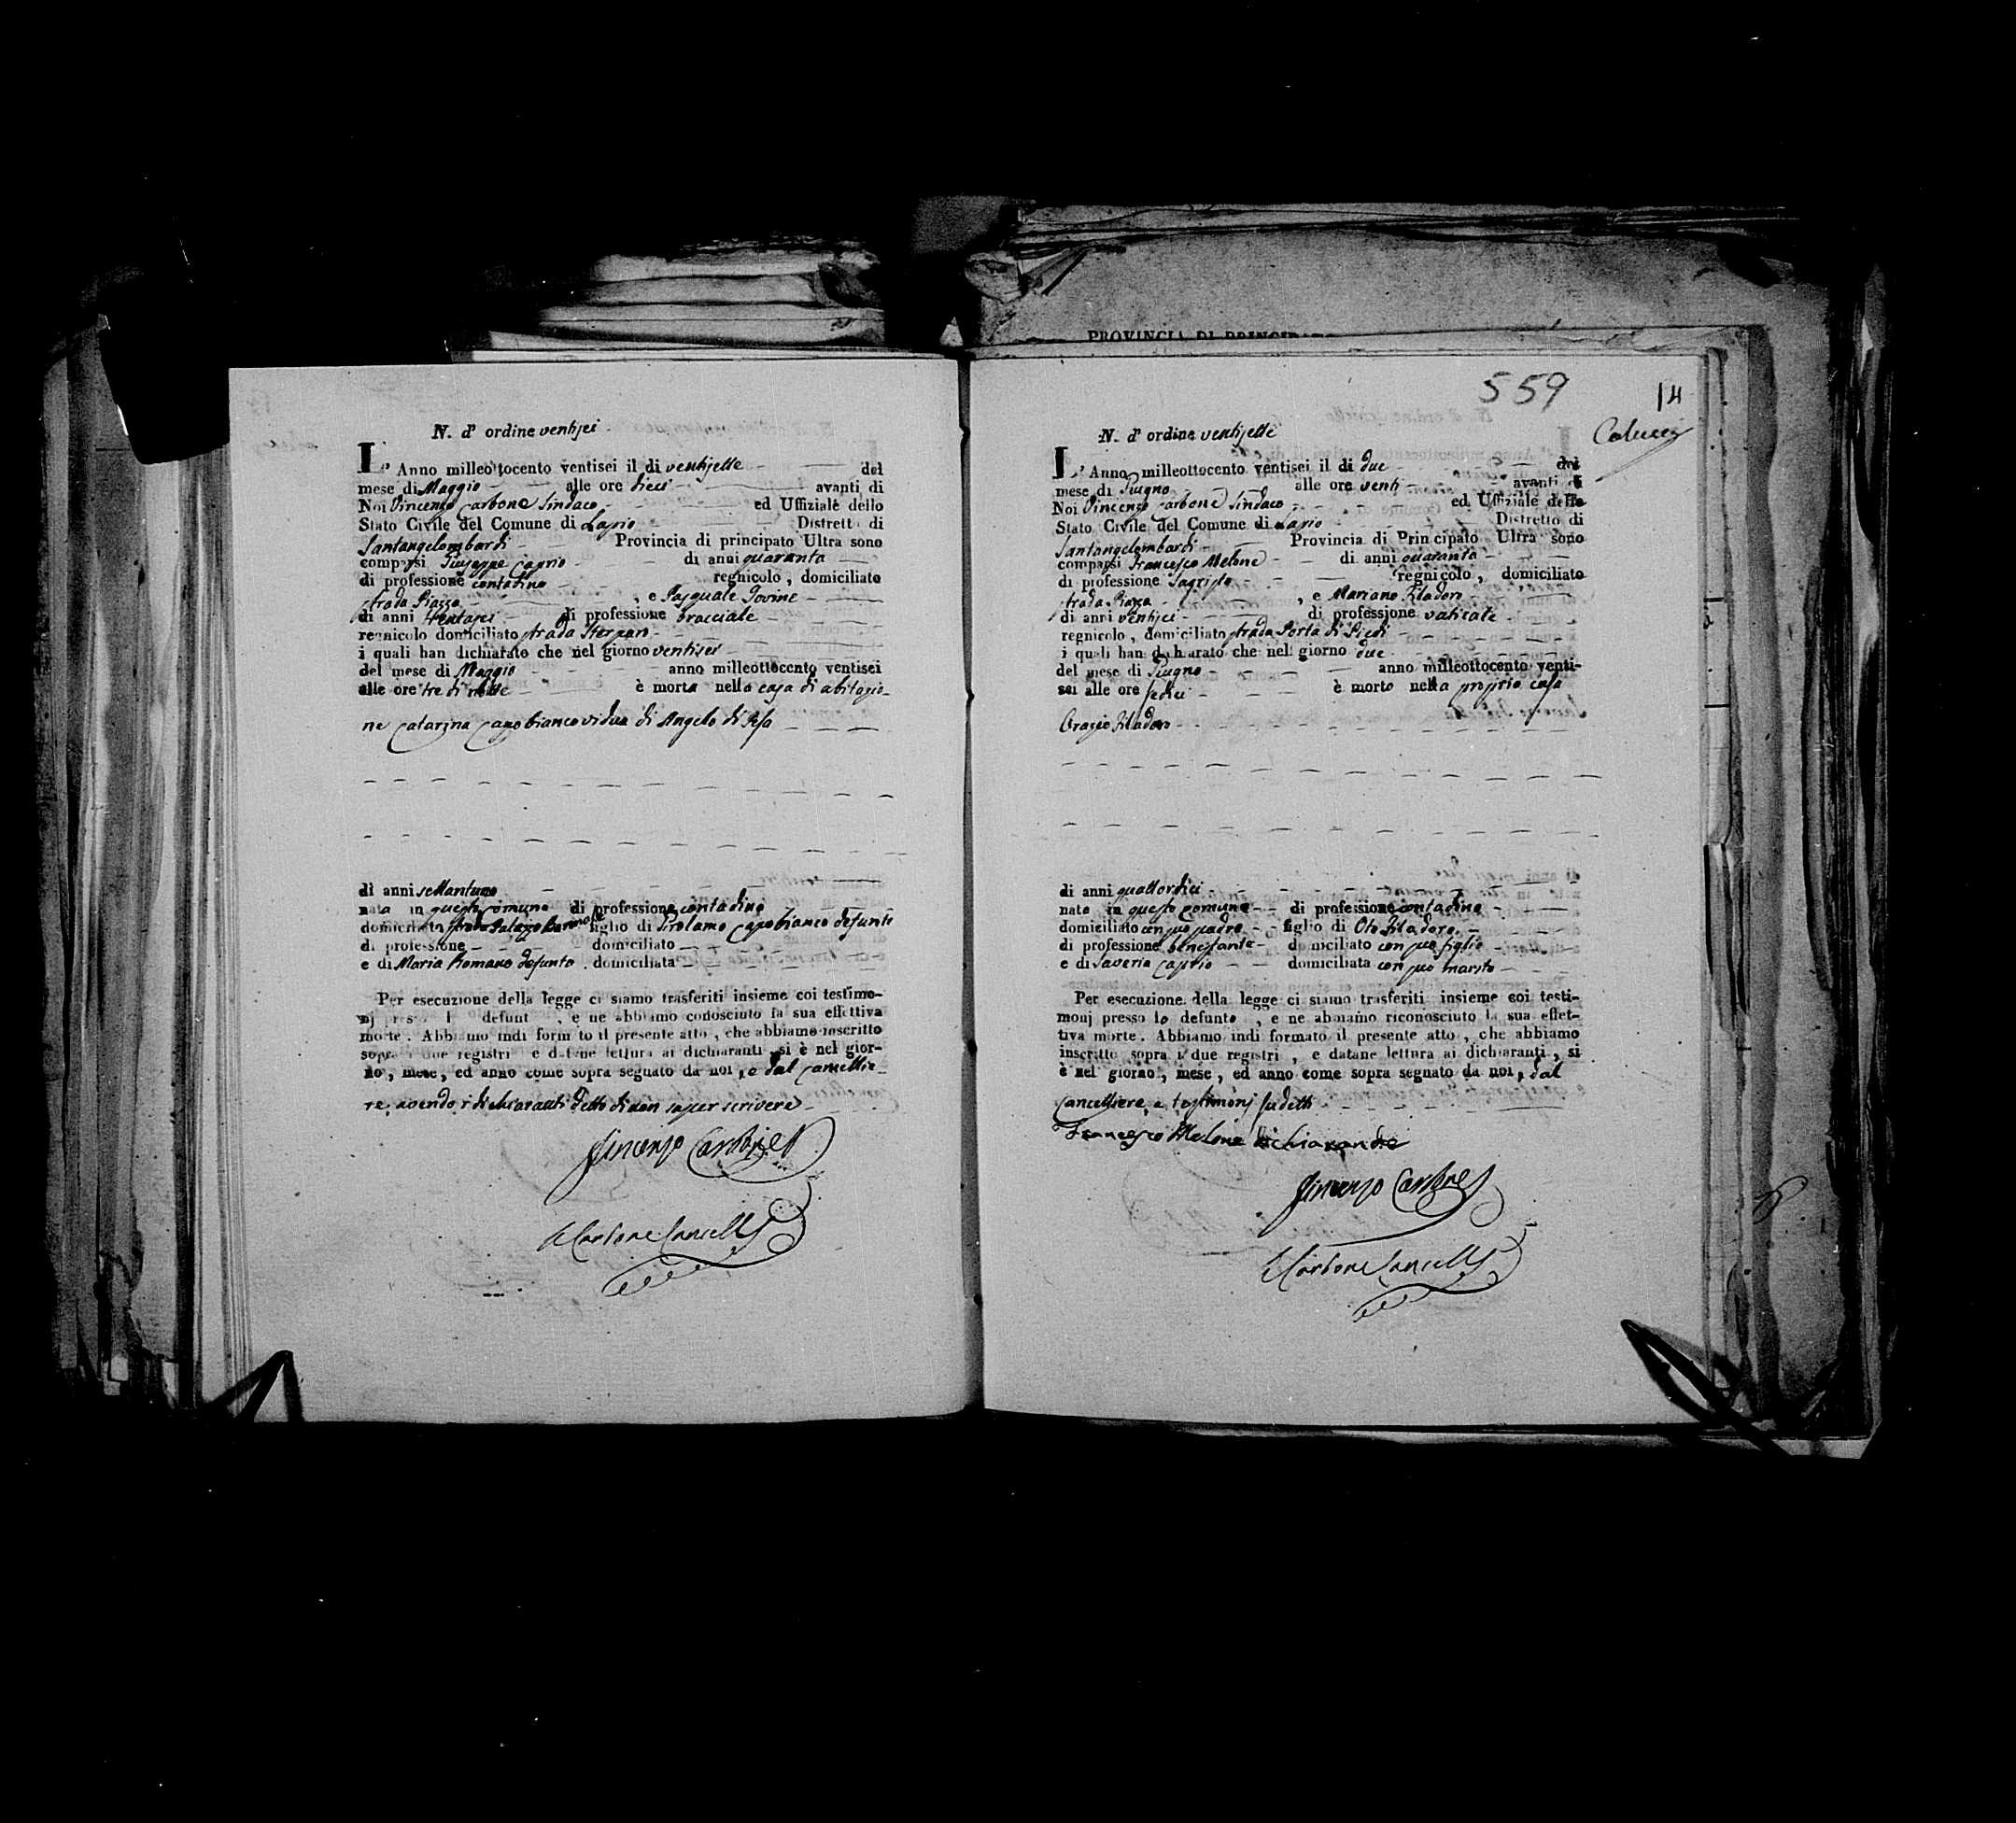 PROVINCIA DI PRINCIPATO
N. d' ordine ventisei
L' Anno milleottocento ventisei il di ventisette del
mese di Maggio alle ore dieci avanti di
Noi Vincenzo Carbone Sindaco ed Uffiziale dello
Stato Civile del Comune di Lapio Distretto di
Santangelombardi Provincia di principato Ultra sono
comparsi Giuseppe Caprio di anni quaranta
di professione contadino regnicolo, domiciliato
strada Piazza, e Pasquale Iovine
di anni trentasei di professione bracciale
regnicolo domiciliato strada
i quali han dichiarato che nel giorno ventisei
del mese di Maggio anno milleottocento ventisei
alle ore tre di notte è morta nella casa di abitazio-
ne Catarina Capobianco vidua di Angelo di
di anni settantuno
nata in questo comune di professione contadina
domiciliata strada Palazzo Baronale figlio di Girolamo Capobianco defunto
di professione domiciliato
e di Maria Romano defunta domiciliata
Per esecuzione della legge ci siamo trasferiti insieme coi testimo-
nj defunt , e ne abbiamo conosciuto la sua effettiva
morte. Abbiamo indi formato il presente atto, che abbiamo inscritto
sopra i due registri e datane lettura ai dichiaranti si è nel gior-
no, mese, ed anno come sopra segnato da noi, e dal Cancellie-
re, avendo i dichiaranti detto di non saper scrivere
Vincenzo Carbone
Carbone Cancell
559
14
Colucci
N. d' ordine ventisette
L' Anno milleottocento ventisei il di due del
mese di Giugno alle ore venti avanti di
Noi Vincenzo Carbone Sindaco ed Uffiziale dello
Stato Civile del Comune di Lapio Distretto di
Santangelombardi Provincia di Principato Ultra sono
comparsi Francesco Melone di anni quaranta
di professione Sagristo regnicolo, domiciliato
strada Piazza, e Mariano Filadoro
di anni ventisei di professione vaticale
regnicolo, domiciliato strada Porta di Piedi
i quali han dichiarato che nel giorno due
del mese di Giugno anno milleottocento venti-
sei alle ore sedici è morto nella propria casa
Orazio Filadoro
di anni quattordici
nato in questo comune di professione contadino
domiciliato con suo padre figlio di Oto Filadoro
di professione benestante domiciliato con suo figlio
e di Saveria Caprio domiciliata con suo marito
Per esecuzione della legge ci siamo trasferiti insieme coi testi-
monj presso lo defunto, e ne abbiamo riconosciuto la sua effet-
tiva morte. Abbiamo indi formato il presente atto, che abbiamo
inscritto sopra i due registri, e datane lettura ai dichiaranti, si
è nel giorno, mese, ed anno come sopra segnato da noi, dal
Cancelliere, e testimonj sudetti
Francesco Melone dichiarande
Vincenzo Carbone
Carbone Cancell